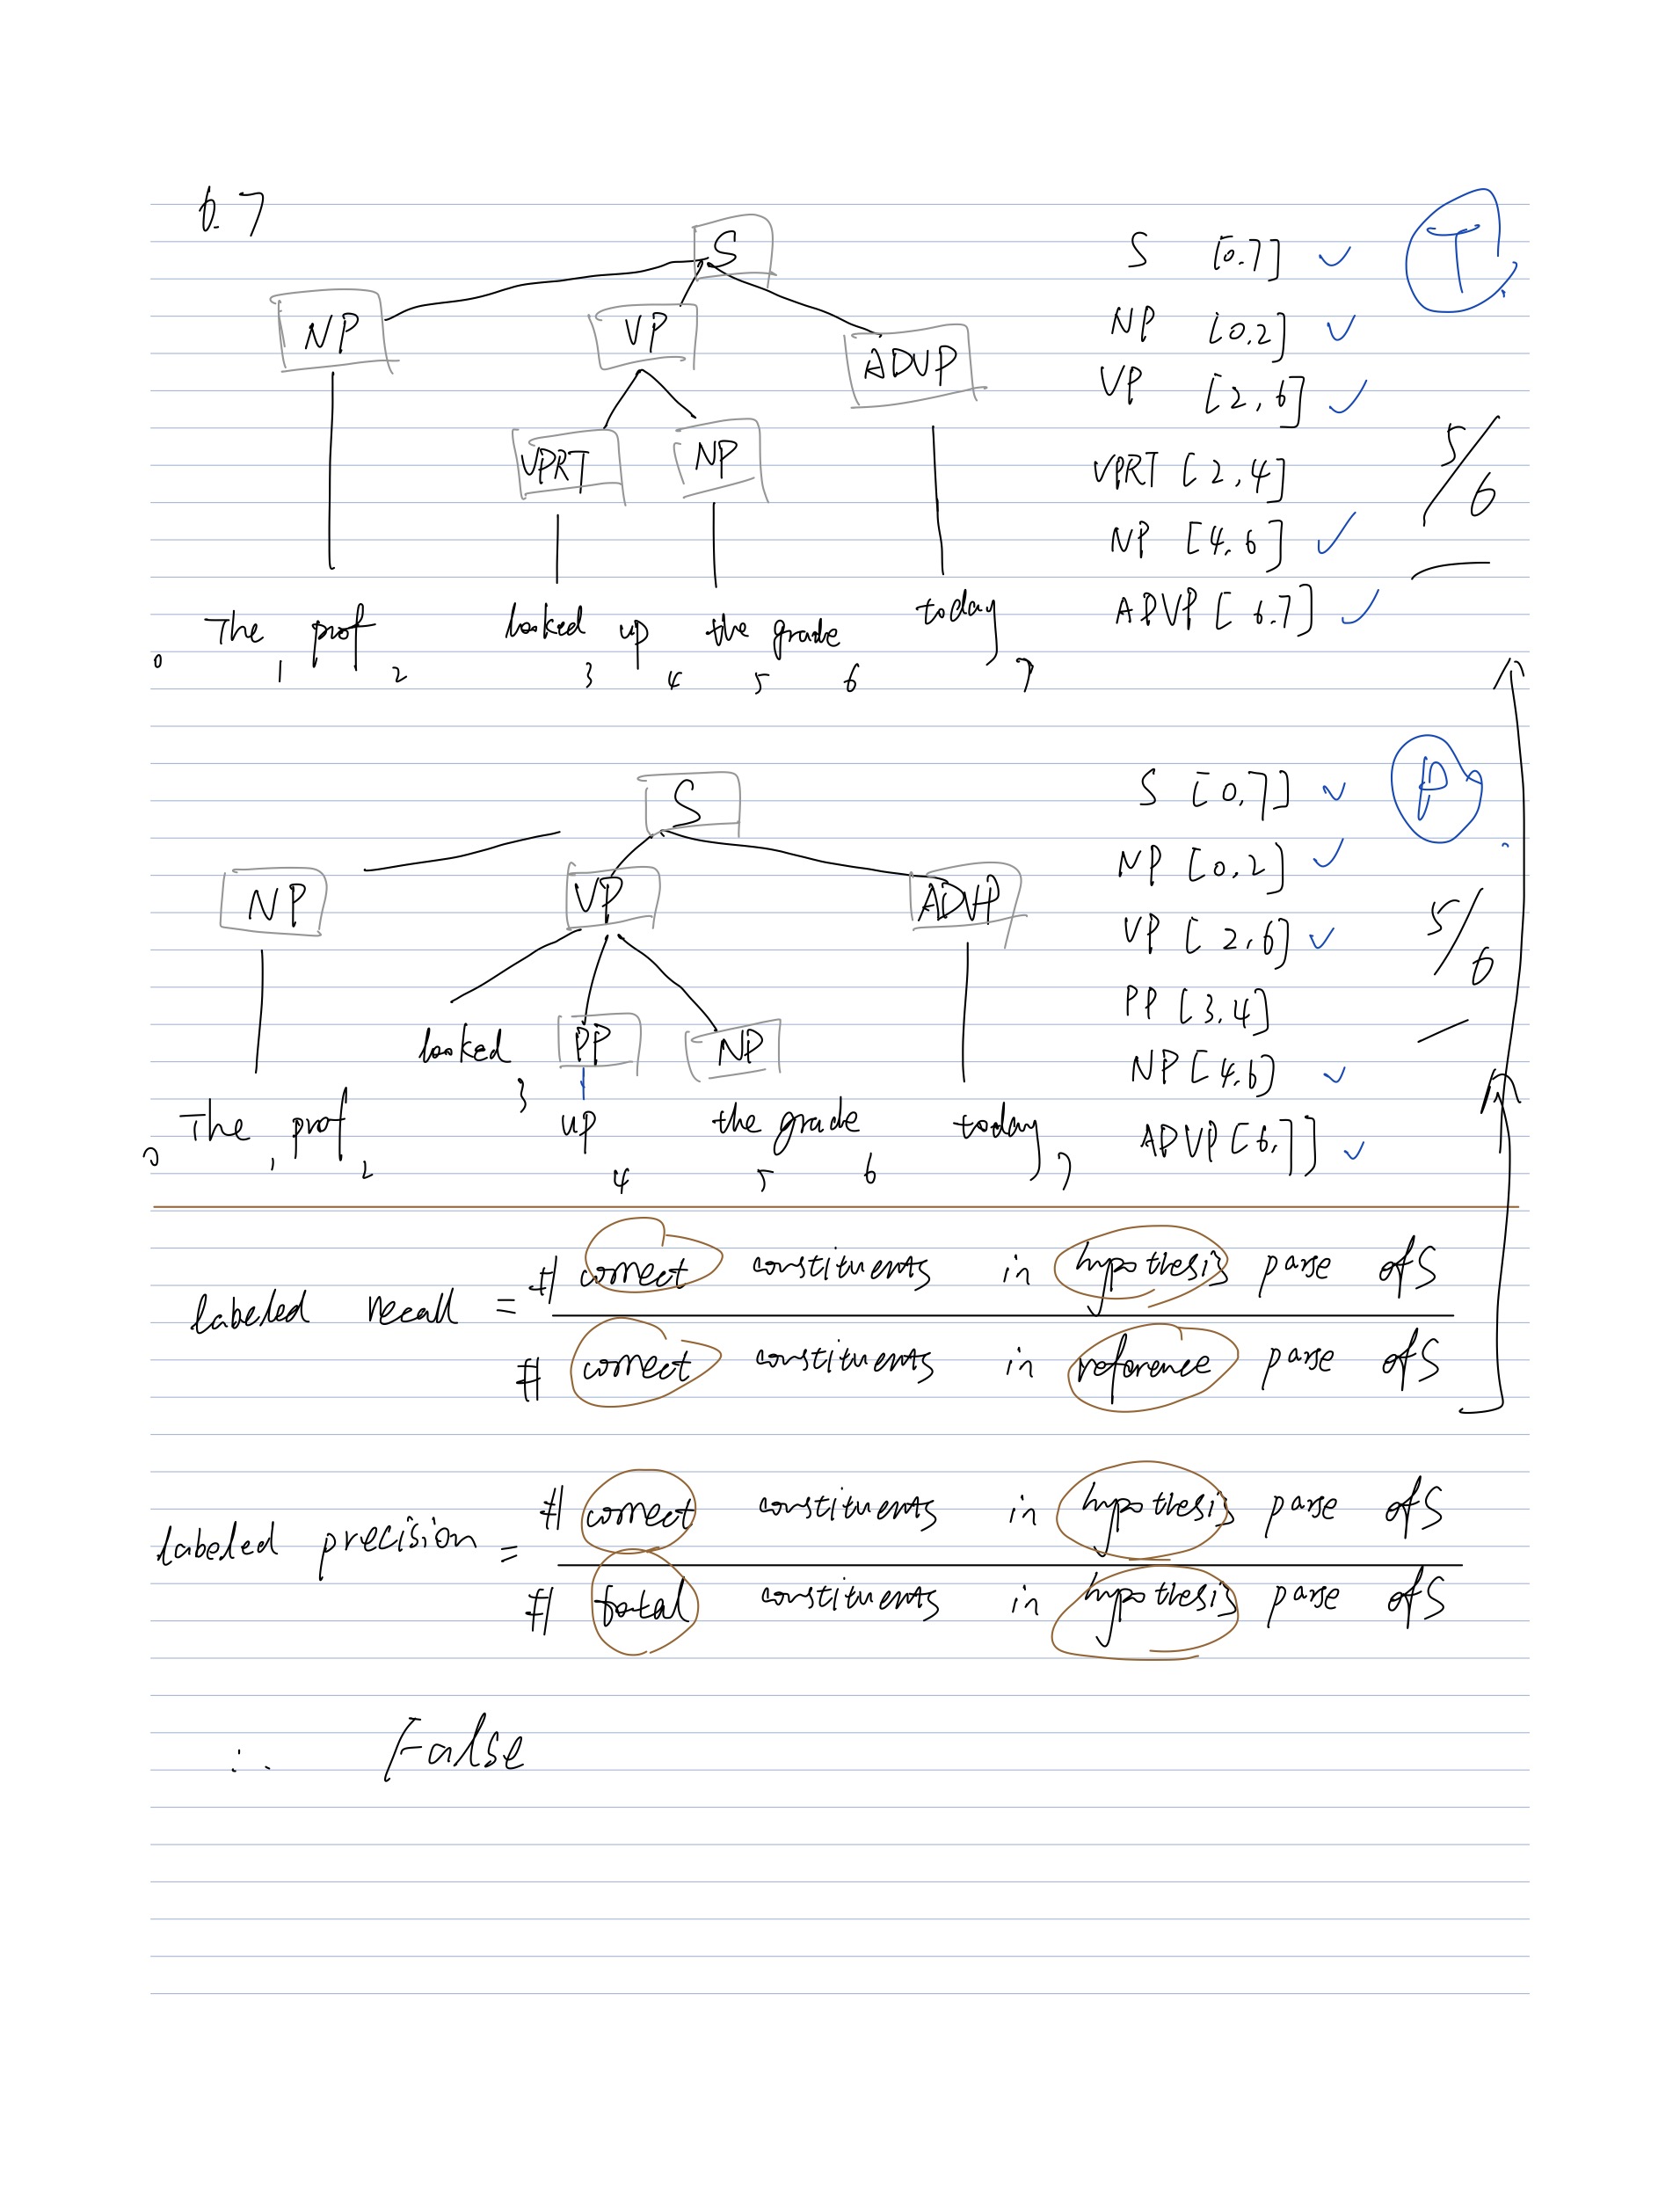 6.7
S
NP VP ADVP
VPRT NP
The prof looked up the grade today
0 1 2 3 4 5 6 7
S [0.7] ✓
NP [0.2] ✓
VP [2,6] ✓
VPRT [2,4]
NP [4.6] ✓
ADVP [6.7] ✓
T
5/6
S
NP VP ADVP
looked PP NP
3
The prof up the grade today
0 1 2 4 5 6 7
S [0,7] ✓
NP [0,2] ✓
VP [2,6] ✓
PP [3,4]
NP [4,6] ✓
ADVP [6,7] ✓
P
5/6
labeled recall = # correct constituents in hypothesis parse of S
# correct constituents in reference parse of S
labeled precision = # correct constituents in hypothesis parse of S
# total constituents in hypothesis parse of S
∴ False